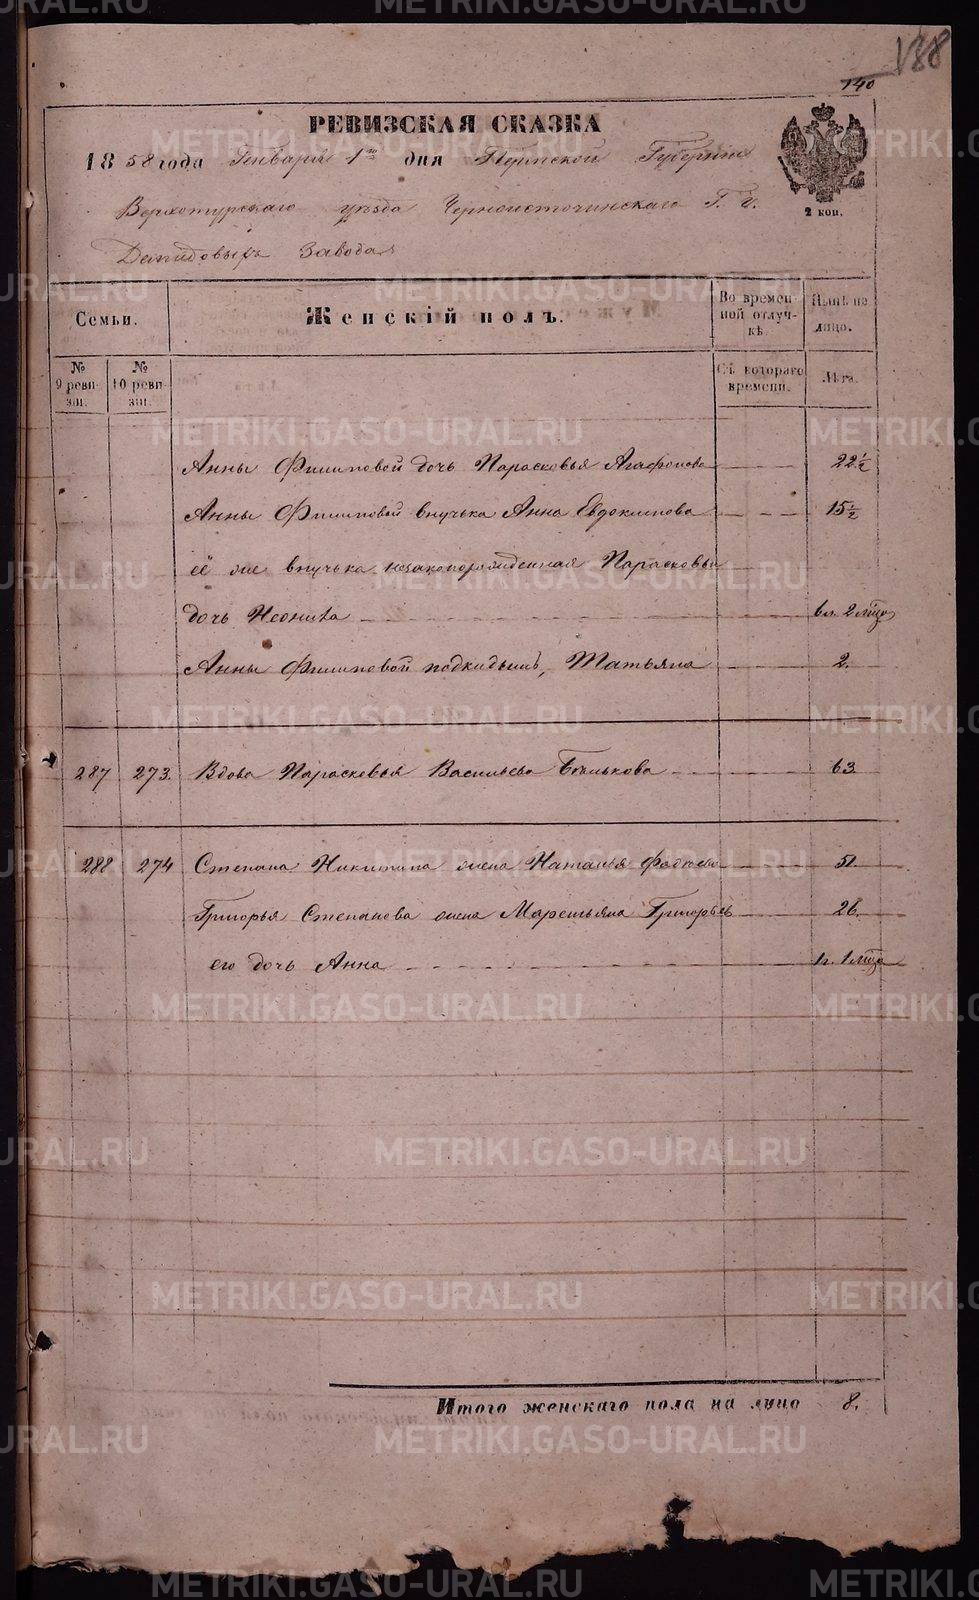 138
140
РЕВИЗСКАЯ СКАЗКА
1858 года Генваря 1го дня Пермской Губернии
Верхотурскаго уезда Черноисточинскаго Г. г.
Демидовыхъ Завода
2 коп.
Семьи.
Женскій полъ.
Во времен-
ной отлуч-
кѣ.
Нынѣ на
лицо.
№
9 реви-
зіи.
№
10 реви-
зіи.
Съ котораго
времени.
Лѣта.
Анны Филиповой дочь Парасковья Агафонова 22½
Анны Филиповой внучька Анна Евдокимова 15½
её же внучька незаконорожденная Парасковьи
дочь Неонила 6 л. 2 мца
Анны Филиповой подкидышъ, Татьяна 2.
287 273. Вдова Парасковья Васильева Бочькова 63.
288 274 Степана Никитина жена Наталья 51.
Григорья Степанова жена Маремьяна Григорьев 26.
его дочь Анна 1 г. 1 мца
Итого женскаго пола на лицо 8.
METRIKI.GASO-URAL.RU